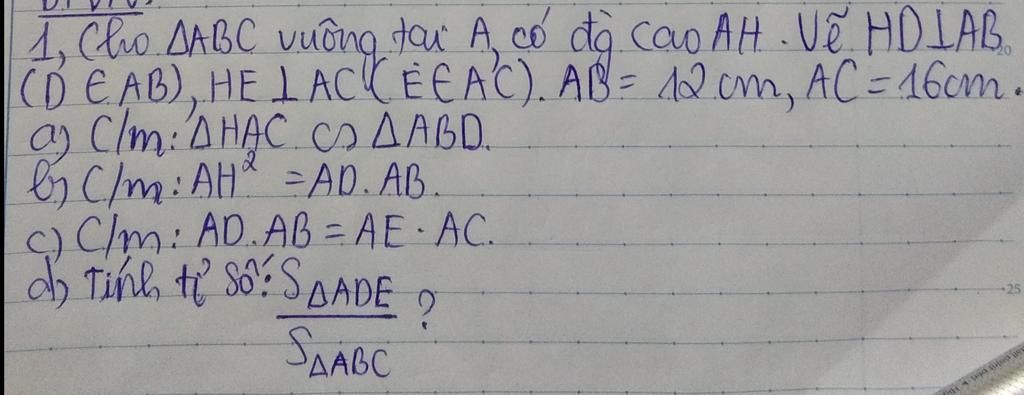 1, Cho ΔABC vuông tại A, có đg cao AH. Vẽ HD⊥AB
(D ∈ AB), HE ⊥ AC (E ∈ AC). AB = 12 cm, AC = 16cm.
a) C/m: ΔHAC ∽ ΔABD.
b) C/m: AH² = AD. AB.
c) C/m: AD. AB = AE. AC.
d) Tính tỉ số: S ΔADE / S ΔABC ?
25